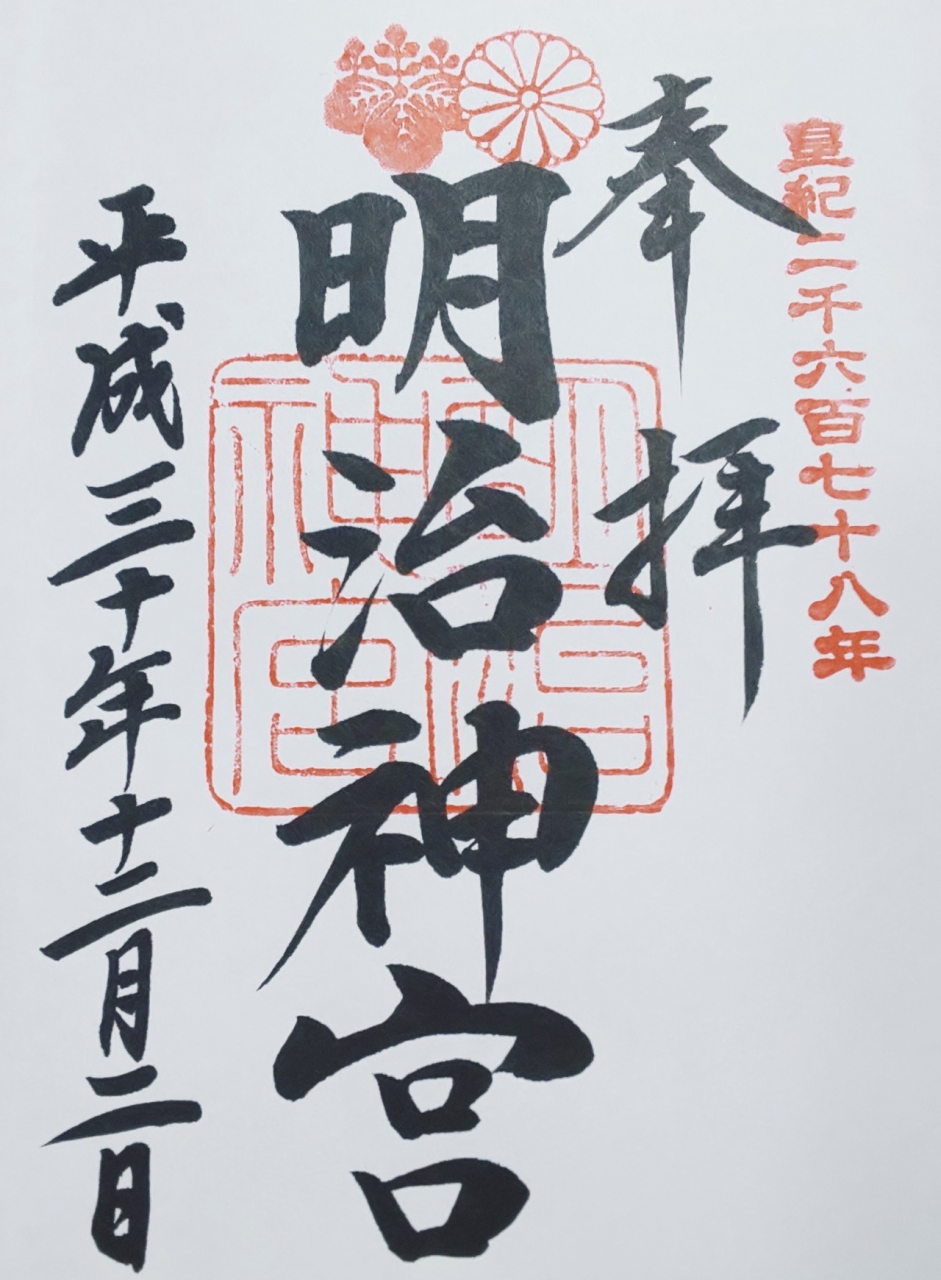 皇紀二千六百七十八年
奉拝
明治神宮
明治神宮
平成三十年十二月二日